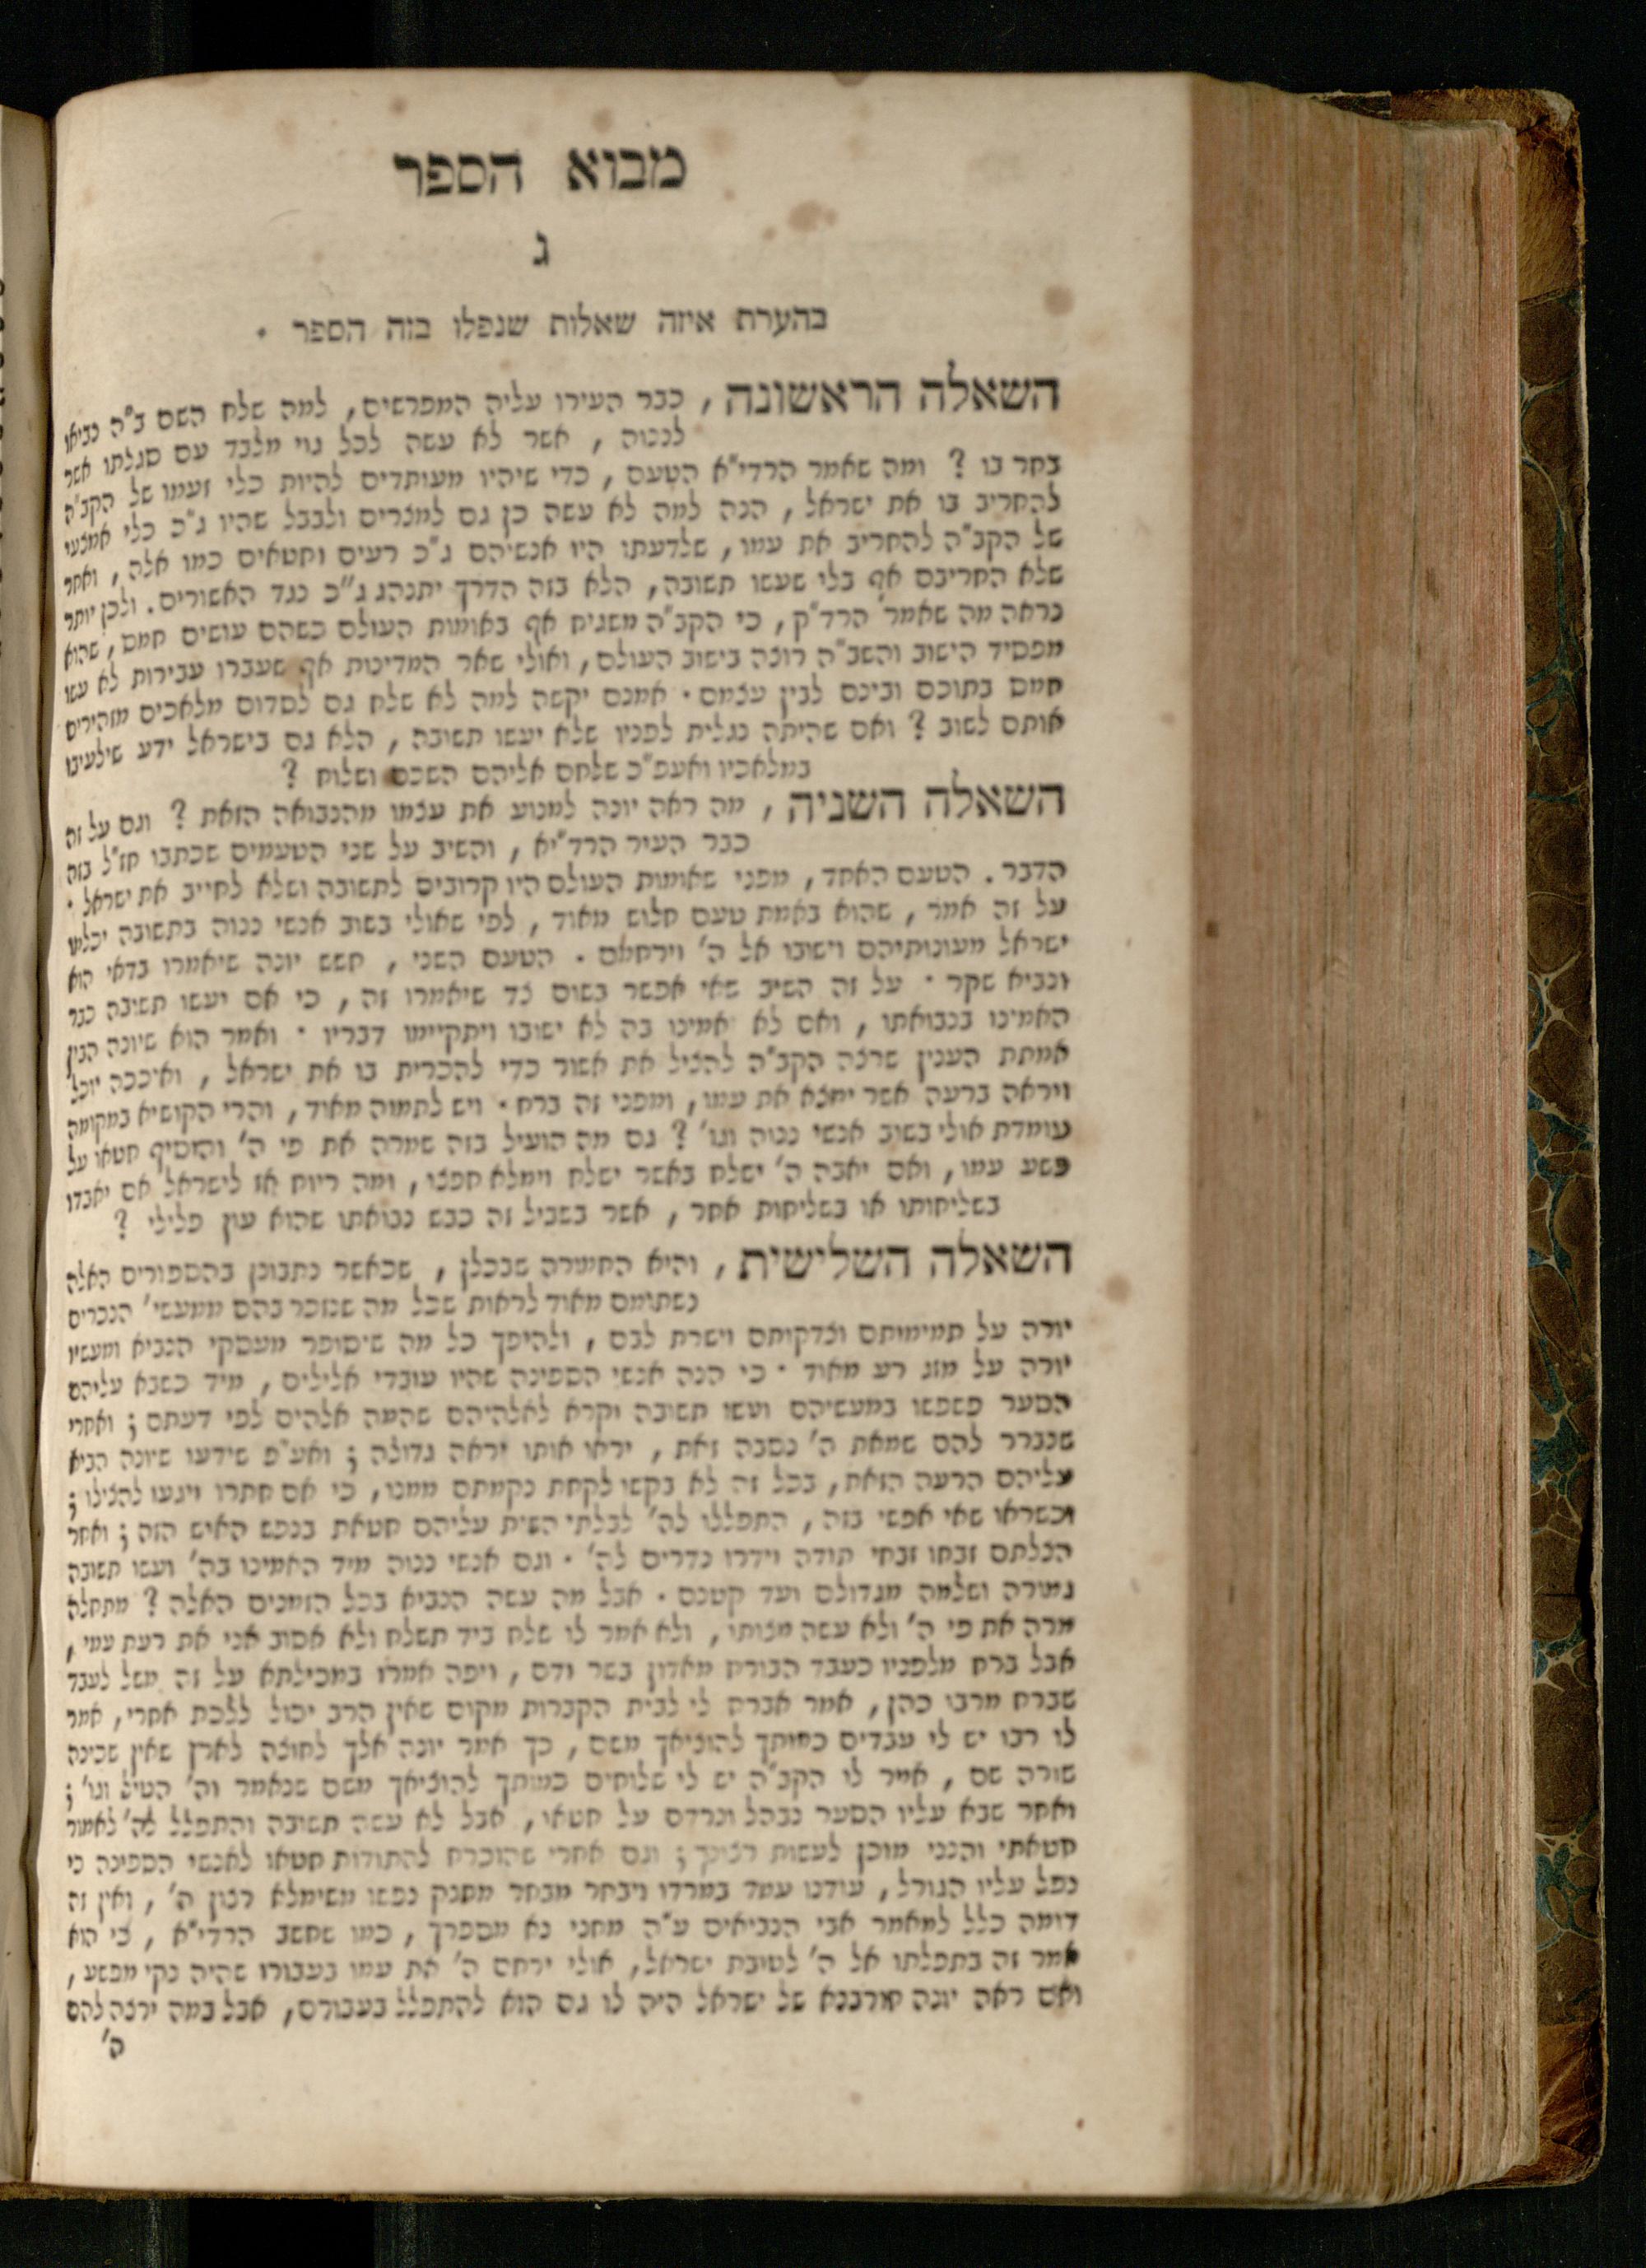 מבוא הספר
ג
בהערת איזה שאלות שנפלו בזה הספר .
השאלה הראשונה , כבר העירו עליה המפרשים , למה שלח השם ב"ה נביאו
לננוה , אשר לא עשה לכל גוי מלבד עם סגלתו אשר
בחר בו ? ומה שאמר הרדי"א הטעם , כדי שיהיו מעותדים להיות כלי זעמו של הקב"ה
להחריב בו את ישראל , הנה למה לא עשה כן גם למצרים ולבבל שהיו ג"כ כלי אמצעי
של הקב"ה להחריב את עמו , שלדעתו היו אנשיהם ג"כ רעים וחטאים כמו אלה , ואחר
שלא החריבם אף בלי שעשו תשובה , הלא בזה הדרך יתנהג ג"כ נגד האשורים . ולכן יותר
נראה מה שאמר הרד"ק , כי הקב"ה משגיח אף באומות העולם כשהם עושים חמס , שהוא
מפסיד הישוב והשב"ה רוצה בישוב העולם , ואולי שאר המדינות אף שעברו עבירות לא עשו
חמס בתוכם ובינם לבין עצמם . אמנם יקשה למה לא שלח גם לסדום מלאכים מזהירים
אותם לשוב ? ואם שהיתה נגלית לפניו שלא יעשו תשובה , הלא גם בישראל ידע שילעיבו
במלאכיו ואעפ"כ שלחם אליהם השכם ושלוח ?
השאלה השניה , מה ראה יונה למנוע את עצמו מהנבואה הזאת ? וגם על זה
כבר העיר הרד"יא , והשיב על שני הטעמים שכתבו חז"ל בזה
הדבר . הטעם האחד , מפני שאומות העולם היו קרובים לתשובה ושלא לחייב את ישראל .
על זה אמר , שהוא באמת טעם חלוש מאוד , לפי שאולי בשוב אנשי ננוה בתשובה יכלמו
ישראל מעונותיהם וישובו אל ה' וירחמם . הטעם השני , חשש יונה שיאמרו בדאי הוא
ונביא שקר . על זה השיב שאי אפשר בשום צד שיאמרו זה , כי אם יעשו תשובה כבר
האמינו בנבואתו , ואם לא יאמינו בה לא ישובו ויתקיימו דבריו . ואמר הוא שיונה הבין
אמתת הענין שרצה הקב"ה להציל את אשור כדי להכרית בו את ישראל , ואיככה יוכל
ויראה ברעה אשר ימצא את עמו , ומפני זה ברח . ויש לתמוה מאוד , והרי הקושיא במקומה
עומדת אולי בשוב אנשי ננוה וגו' ? גם מה הועיל בזה שמרה את פי ה' והוסיף חטאו על
פשע עמו , ואם יאבה ה' ישלח באשר ישלח וימלא חפצו , ומה ריוח אז לישראל אם יאבדו
בשליחותו או בשליחות אחר , אשר בשביל זה כבש נבואתו שהוא עון פלילי ?
השאלה השלישית , והיא החמורה שבכלן , שכאשר נתבונן בהספורים האלה
נשתומם מאוד לראות שכל מה שנזכר בהם ממעשי' הנכרים
יורה על תמימותם וצדקותם וישרת לבם , ולהיפך כל מה שיסופר מעסקי הנביא ומעשיו
יורה על מזג רע מאוד . כי הנה אנשי הספינה שהיו עובדי אלילים , מיד כשבא עליהם
הסער פשפשו במעשיהם ועשו תשובה וקרא לאלהיהם שהמה אלהים לפי דעתם ; ואחרי
שנברר להם שמאת ה' נסבה זאת , יראו אותו יראה גדולה ; ואע"פ שידעו שיונה הביא
עליהם הרעה הזאת , בכל זה לא בקשו לקחת נקמתם ממנו , כי אם חתרו ויגעו להצילו ;
וכשראו שאי אפשי בזה , התפללו לה' לבלתי השית עליהם חטאת בנפש האיש הזה ; ואחר
הצלתם זבחו זבחי תודה וידרו נדרים לה' . וגם אנשי ננוה מיד האמינו בה' ועשו תשובה
גמורה ושלמה מגדולם ועד קטנם . אבל מה עשה הנביא בכל הזמנים האלה ? מתחלה
מרה את פי ה' ולא עשה מצותו , ולא אמר לו שלח ביד תשלח ולא אסוב אני את רעת עמי ,
אבל ברח מלפניו כעבד הבורח מאדון בשר ודם , ויפה אמרו במכילתא על זה משל לעבד
שברח מרבו כהן , אמר אברח לי לבית הקברות מקום שאין הרב יכול ללכת אחרי , אמר
לו רבו יש לי עבדים כמותך להוציאך משם , כך אמר יונה אלך לחוצה לארץ שאין שכינה
שורה שם , אמר לו הקב"ה יש לי שלוחים כמותך להוציאך משם שנאמר וה' הטיל וגו' ;
ואחר שבא עליו הסער נבהל ונרדם על חטאו , אבל לא עשה תשובה והתפלל לה' לאמור
חטאתי והנני מוכן לעשות רצונך ; וגם אחרי שהוכרח להתודות חטאו לאנשי הספינה כי
נפל עליו הגורל , עודנו עמד במרדו ויבחר מבחר מחנק נפשו משימלא רצון ה' , ואין זה
דומה כלל למאמר אבי הנביאים ע"ה מחני נא מספרך , כמו שחשב הרדי"א , כי הוא
אמר זה בתפלתו אל ה' לטובת ישראל , אולי ירחם ה' את עמו בעבורו שהיה נקי מפשע ,
ואם ראה יונה חורבנא של ישראל היה לו גם הוא להתפלל בעבורם , אבל במה ירצה להם
ה'